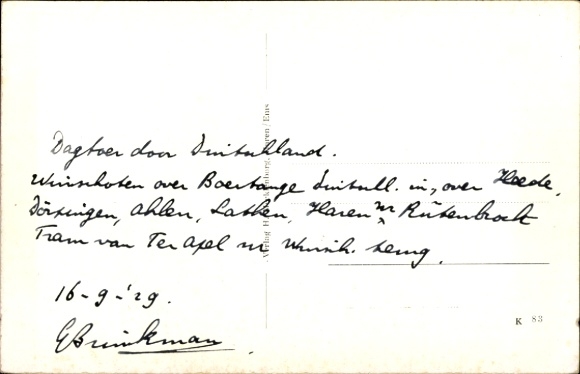 Dagtoer door Duitschland.
Winschoten over Boertange Duitschl. in, over Heede,
Dörsingen, Ahlen, Lathen, Haren nr Rütenbrock
Tram van Ter Apel nr Winsch. terug.
16-9-'29.
GBrinkman
Verlag H. ren/Ems
K 83